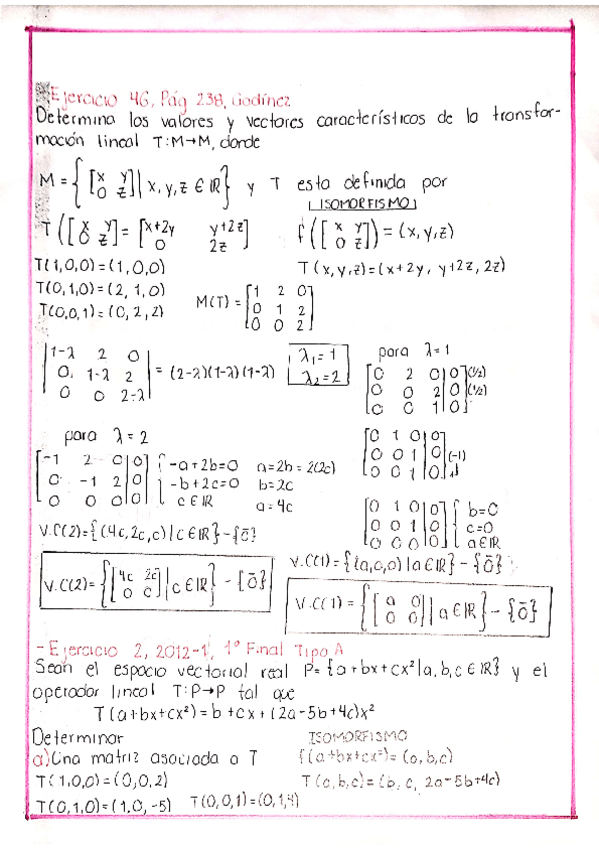 Ejercicio 46, Pág 238, Godínez
Determina los valores y vectores característicos de la transfor-
mación lineal T:M→M, donde
M = { [x y / 0 z] | x, y, z ∈ IR } y T esta definida por
ISOMORFISMO
T ([x y / 0 z] = [x+2y y+2z / 0 2z] f ([x y / 0 z]) = (x, y, z)
T(1,0,0)=(1,0,0) T(x,y,z)=(x+2y, y+2z, 2z)
T(0,1,0)=(2,1,0)
T(0,0,1)=(0,2,2) M(T) = [1 2 0 / 0 1 2 / 0 0 2]
|1-λ 2 0 / 0 1-λ 2 / 0 0 2-λ| = (2-λ)(1-λ)(1-λ) λ₁=1 λ₂=2
para λ=1
[0 2 0|0 / 0 0 2|0 / 0 0 1|0] (1/2) (1/2)
para λ=2
[-1 2 0|0 / 0 -1 2|0 / 0 0 0|0] { -a+2b=0 / -b+2c=0 / c∈IR a=2b=2(2c) b=2c a=4c
[0 1 0|0 / 0 0 1|0 / 0 0 1|0] (-1)
[0 1 0|0 / 0 0 1|0 / 0 0 0|0] { b=0 / c=0 / a∈IR
V.C(2)={(4c,2c,c)|c∈IR}-{ō}
V.C(1)={(a,0,0)|a∈IR}-{ō}
V.C(2)={[4c 2c / 0 c]|c∈IR} - {ō}
V.C(1)={[a 0 / 0 0]|a∈IR} - {ō}
- Ejercicio 2, 2012-1, 1° Final Tipo A
Sean el espacio vectorial real P={a+bx+cx²|a,b,c∈IR} y el
operador lineal T:P→P tal que
T(a+bx+cx²)=b+cx+(2a-5b+4c)x²
Determinar ISOMORFISMO
a)Una matriz asociada a T f(a+bx+cx²)=(a,b,c)
T(1,0,0)=(0,0,2) T(a,b,c)=(b,c, 2a-5b+4c)
T(0,1,0)=(1,0,-5) T(0,0,1)=(0,1,4)